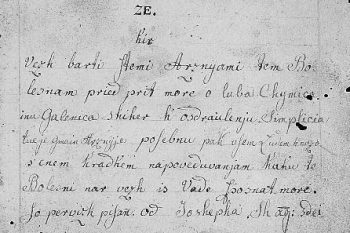 ZE.
kir
vezh barti stemi Arznyami tem Bo-
lesnam pried prit more o laba Chymico
inu Galenica shiher k osdraulenu Simplicia
tuesi Gmain Arznije posebnu pak usem
s'enem kradkem napoveduvanjam Kaku te
Bolesni nar vezh is Vade sposnat more.
so pervizh pisan. od Joshepha